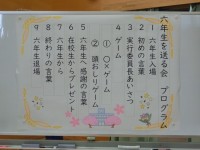 六年生を送る会 プログラム
1 六年生入場
2 初めの言葉
3 実行委員長あいさつ
4 ゲーム
① ○×ゲーム
② 頭おしりゲーム
5 六年生へ感謝の言葉
6 在校生からプレゼント
7 六年生から
8 終わりの言葉
9 六年生退場